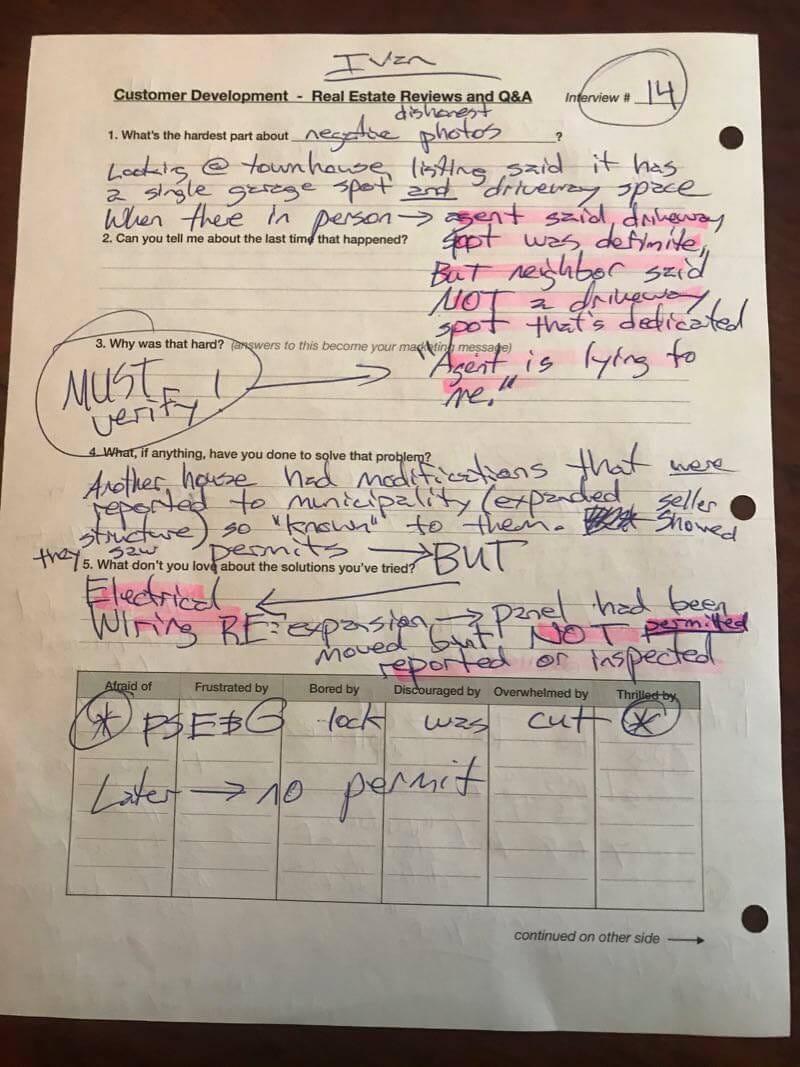 Ivan
Customer Development - Real Estate Reviews and Q&A
Interview # 14
dishonest
1. What's the hardest part about negative photos ?
Looking @ townhouse, listing said it has
a single garage spot and driveway space
When there in person → agent said, driveway
2. Can you tell me about the last time that happened?
spot was definite,
But neighbor said
NOT a driveway
spot that's dedicated
3. Why was that hard? (answers to this become your marketing message)
"Agent is lying to
me."
MUST
verify!
4. What, if anything, have you done to solve that problem?
Another house had modifications that were
reported to municipality (expanded seller
structure) so "known" to them. Showed
they saw permits → BUT
5. What don't you love about the solutions you've tried?
Electrical
Wiring RE: expansion → panel had been
moved but NOT permitted
reported or inspected
Afraid of Frustrated by Bored by Discouraged by Overwhelmed by Thrilled by
* PSE&G lock was cut *
Later → no permit
continued on other side →